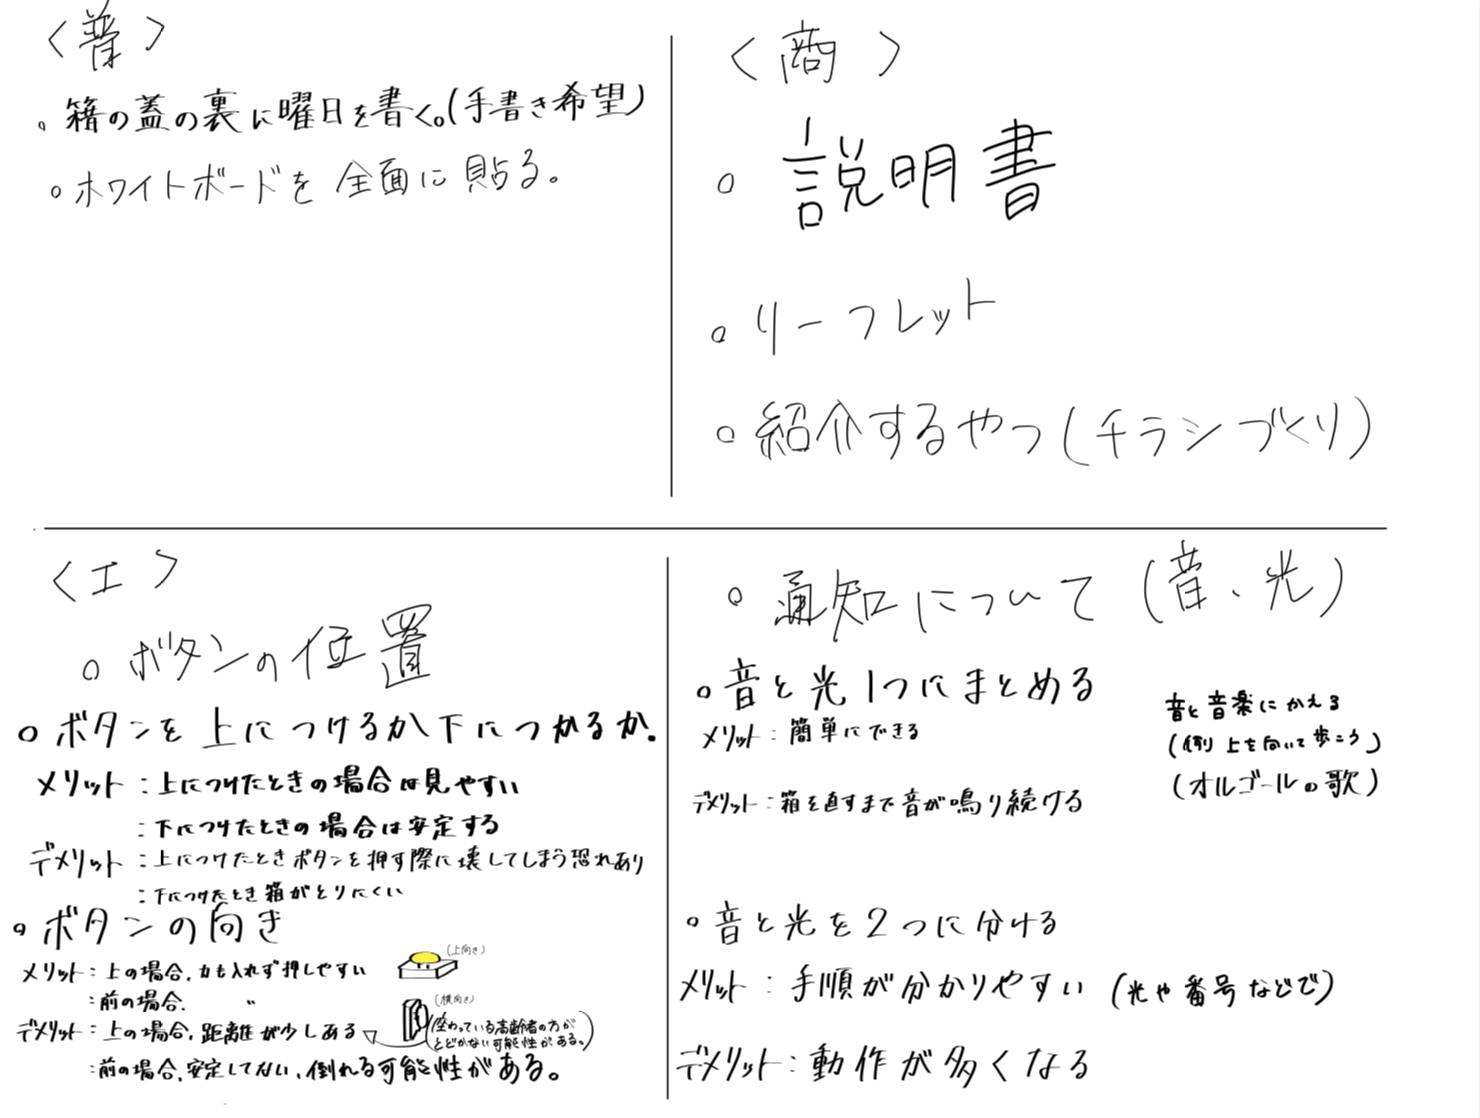 〈普〉
。箱の蓋の裏に曜日を書く。(手書き希望)
○ホワイトボードを全面に貼る。
〈商〉
○説明書
○リーフレット
○紹介するやつ(チラシづくり)
〈工〉
○ボタンの位置
○ボタンを上につけるか下につかるか.
メリット:上につけたときの場合は見やすい
:下につけたときの場合は安定する
デメリット:上につけたときボタンを押す際に壊してしまう恐れあり
:下につけたとき箱がとりにくい
○ボタンの向き
メリット:上の場合,力も入れず押しやすい
:前の場合. 〃
デメリット:上の場合,距離が少しある
:前の場合,安定してない、倒れる可能性がある。
(上向き)
(横向き)
(座わっている高齢者の方が
とどかない可能性がある。)
○通知について(音、光)
○音と光1つにまとめる
メリット:簡単にできる
デメリット:箱を直すまで音が鳴り続ける
音と音楽にかえる
(例 上を向いて歩こう)
(オルゴールの歌)
○音と光を2つに分ける
メリット:手順が分かりやすい(光や番号などで)
デメリット:動作が多くなる